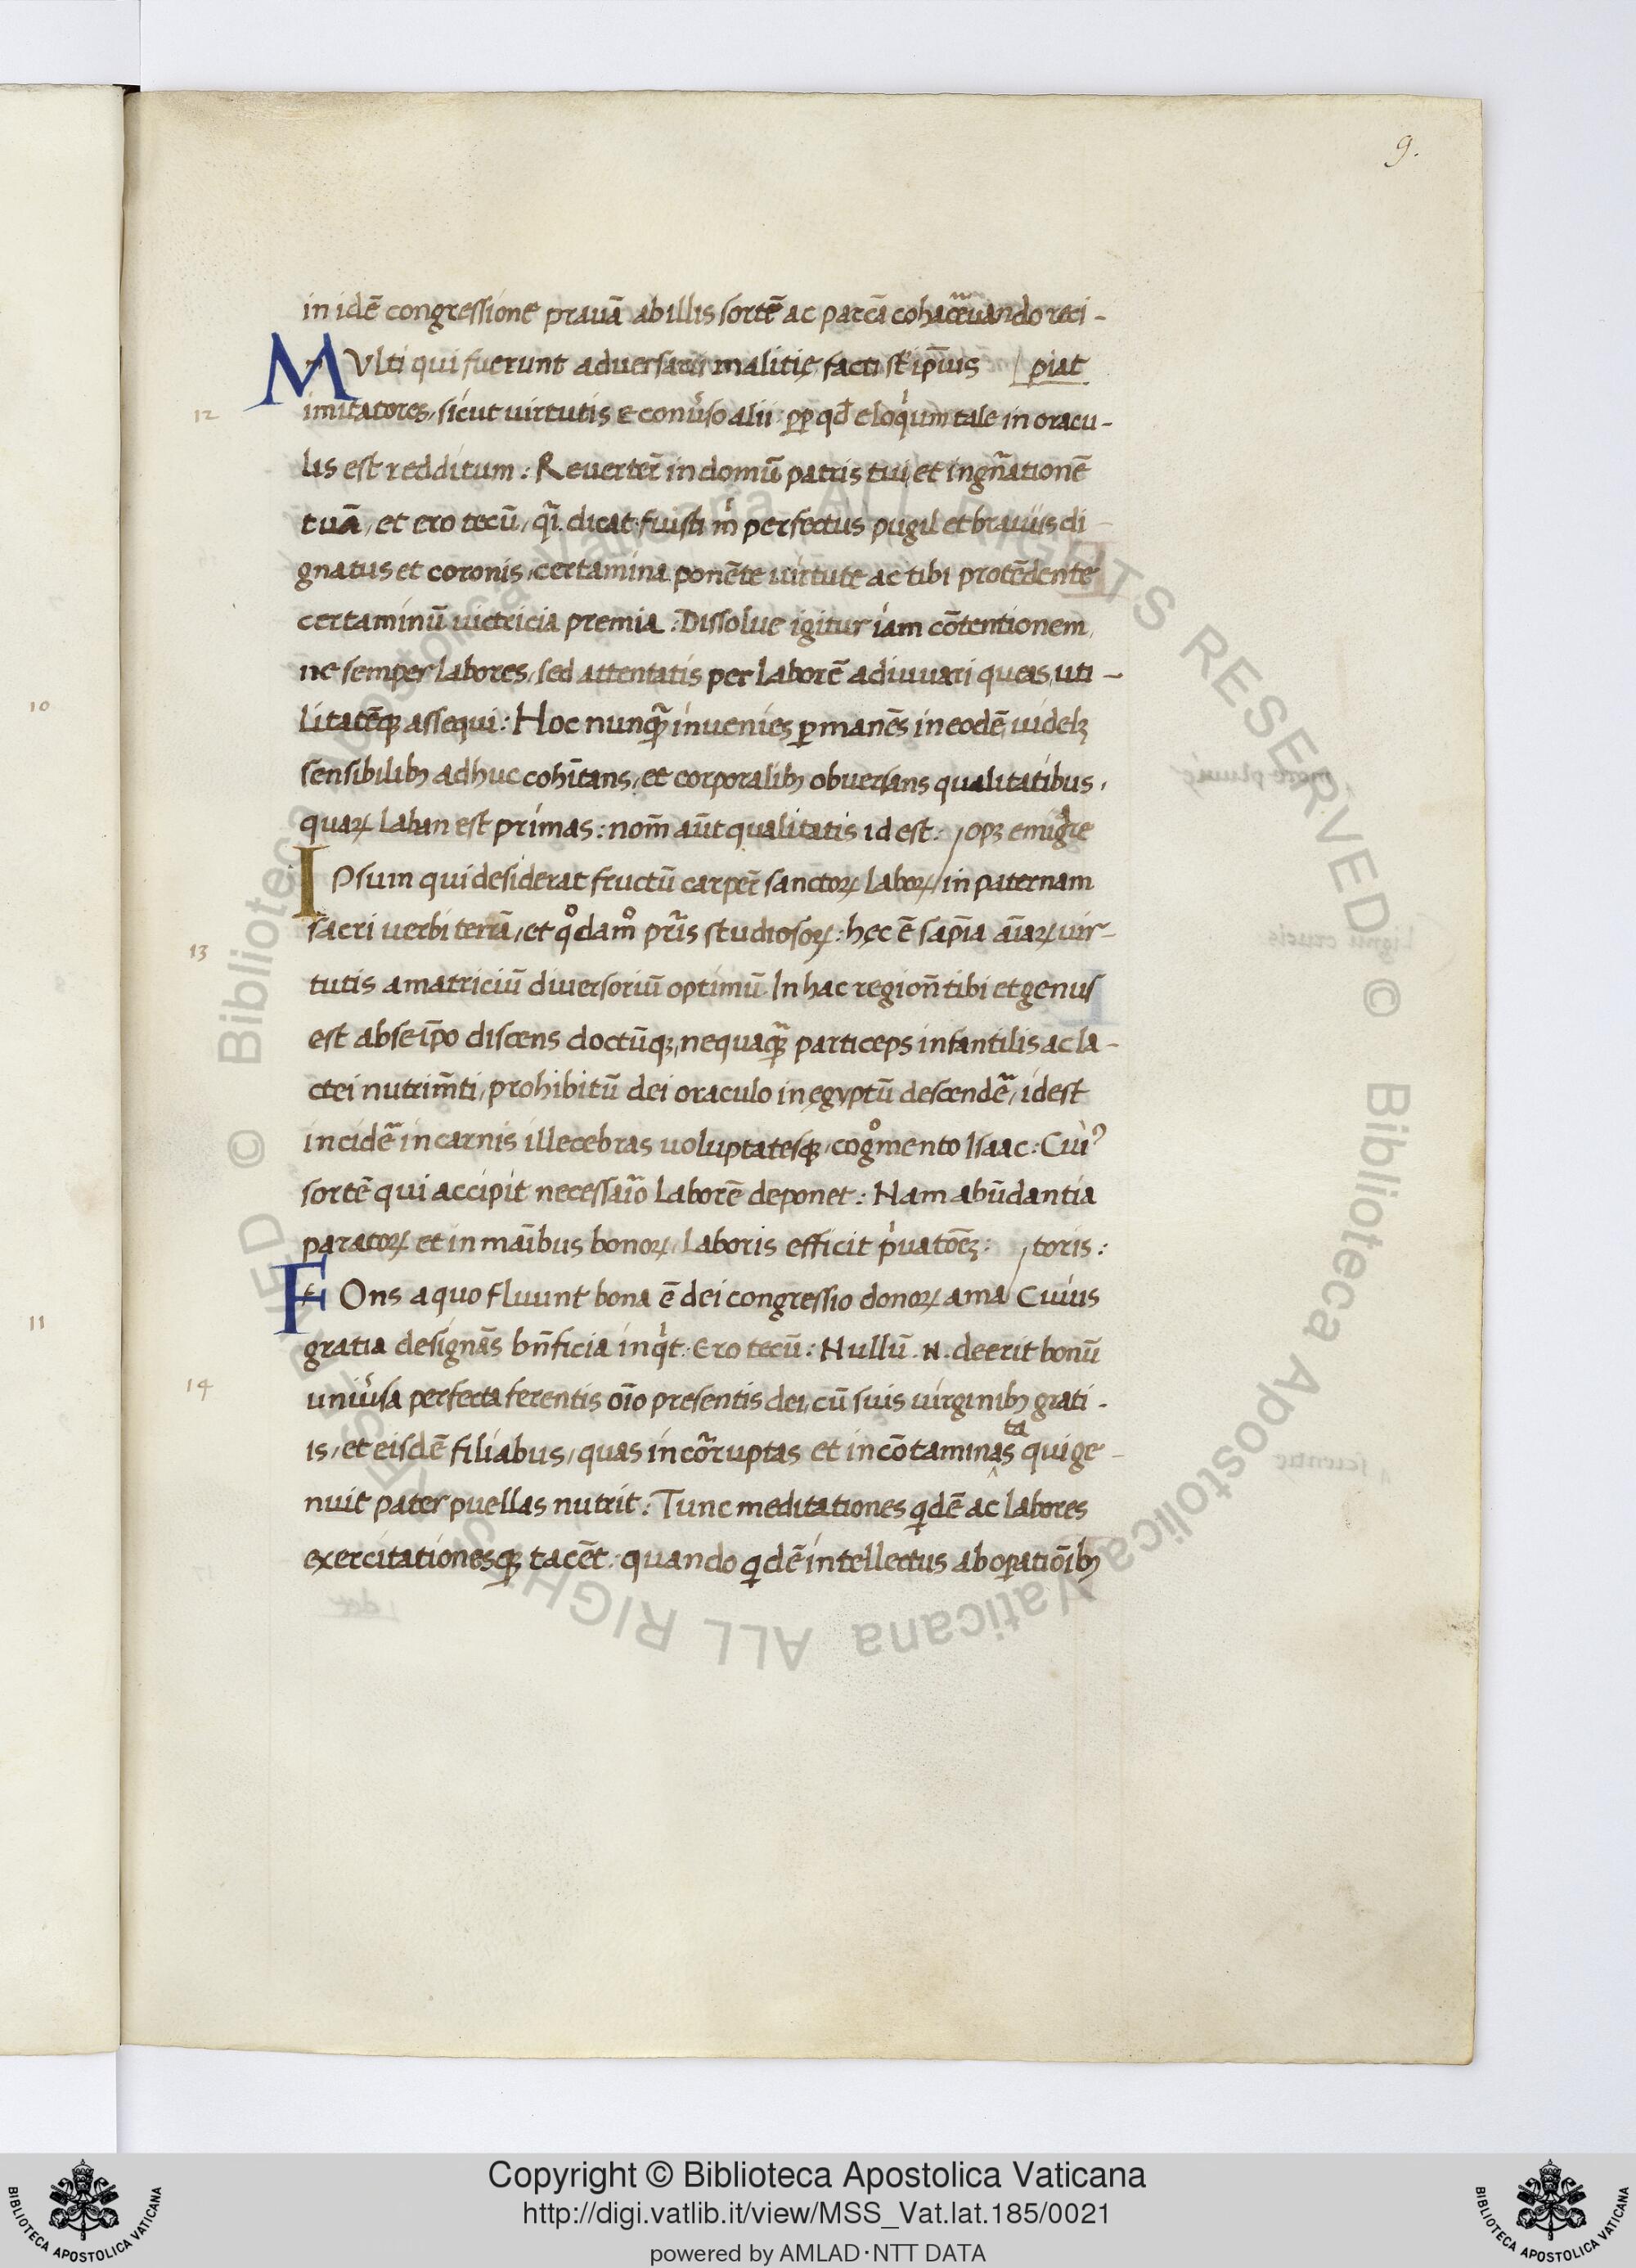 9.
in idē congressione prauā ab illis sortē ac partā cohac̄euando reci-
MVlti qui fuerunt aduersarii malitię facti st̄ ip̄ius piat
12 imitatores, sicut uirtutis e conūso alii: pp̱ qd̄ eloqium tale in oracu-
lis est redditum: Reuertēr in domū patris tui, et in gn̄ationē
tuā, et ero tecū, qī. dicat: fuisti m̄ perfectus pugil et brauiis di-
gnatus et coronis, certamina ponēte uirtute ac tibi protēdente
certaminū uictricia premia: Dissolue igitur iam cōtentionem,
ne semper labores, sed attentatis per laborē adiuuari queas, uti-
10 litatēqꝫ assequi: Hoc nunqꝫ̄ inuenies ꝑmanēs in eodē, uidelꝫ
sensibilibꝫ adhuc cohītans, et corporalibꝫ obuersans qualitatibus,
quaꝝ laban est primas: nom̄ aūt qualitatis id est: opꝫ emigᷓre
IPsum qui desiderat fructū carpēr sanctoꝝ laboꝝ in paternam
13 sacri uerbi terrā, et qͦdamͦ pr̄is studiosoꝝ: hęc ē sap̄ia aīaꝝ uir-
tutis amatriciū diuersoriū optimū. In hac region̄ tibi et genus
est abse ip̄o discens doctūqꝫ, nequaqꝫ̄ particeps infantilis ac la-
ctei nutrim̄ti, prohibitū dei oraculo in ęgyptū descendē, idest
incidē in carnis illecebras uoluptatesqꝫ, cogͦmento Isaac: Cui?
sortē qui accipit necessaīo laborē deponet: Nam abūdantia
paratoꝝ et in maībus bonoꝝ, laboris efficit pͥuatōeꝫ: toris:
11 FOns a quo fluunt bona ē dei congressio donoꝝ ama Cuius
gratia designās bn̄ficia inqͥt: Ero tecū: Nullū .N. deerit bonū
14 uniūsa perfecta ferentis oīo presentis dei, cū suis uirginibꝫ grati-
is, et eisdē filiabus, quas incōrruptas et incōtaminas ta qui ge-
nuit pater puellas nutrit: Tunc meditationes qͥdē ac labores
exercitationesqꝫ tacēt: quando qͥdē intellectus ab oꝑatiōibꝫ
Copyright © Biblioteca Apostolica Vaticana
http://digi.vatlib.it/view/MSS_Vat.lat.185/0021
powered by AMLAD·NTT DATA
BIBLIOTECA APOSTOLICA VATICANA
BIBLIOTECA APOSTOLICA VATICANA